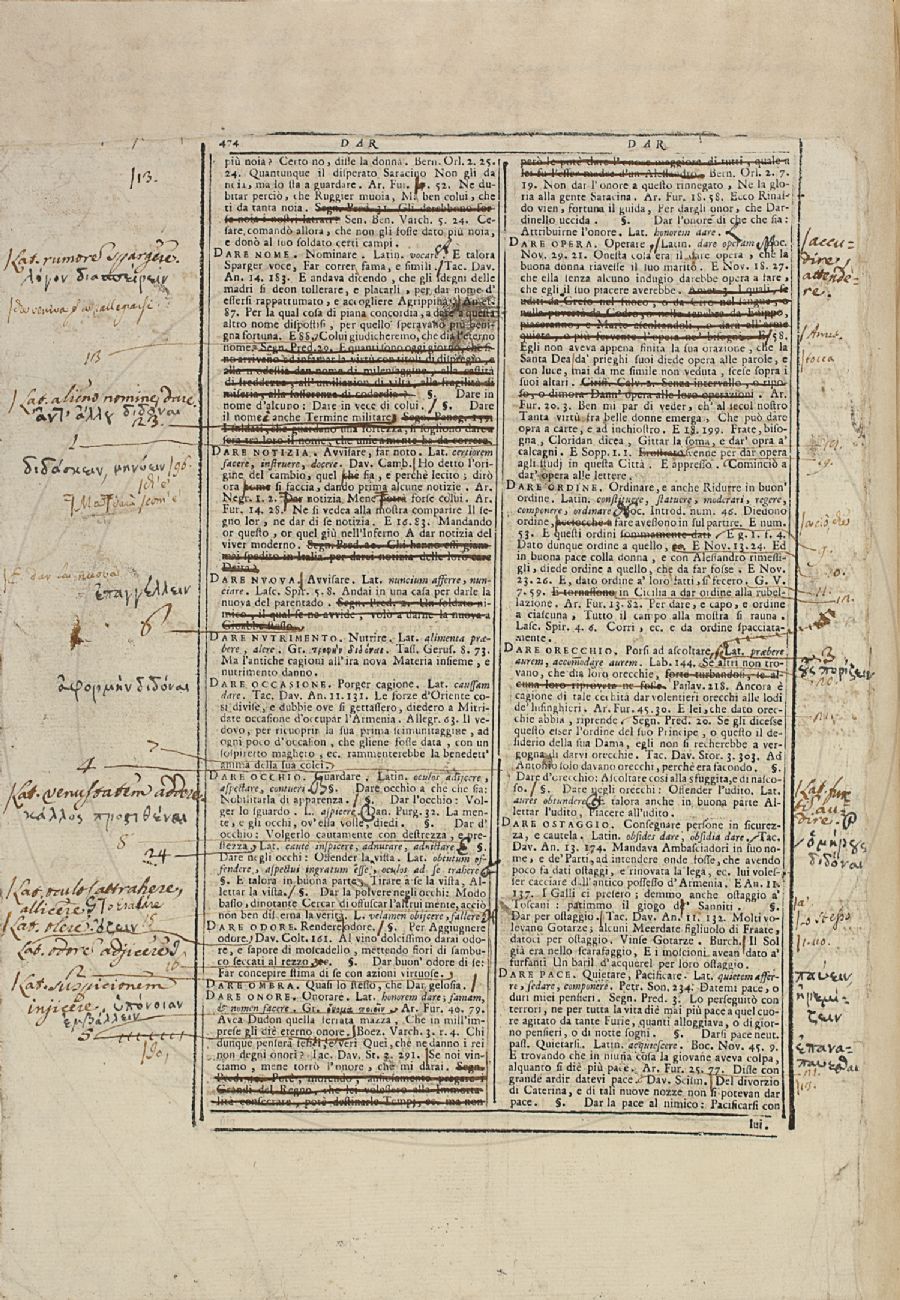 474 DAR DAR
più noia? Certo no, disse la donna. Bern. Orl. 2. 25.
24. Quantunque il disperato Saracino Non gli da
noia, ma lo sta a guardare. Ar. Fur. 52. Ne du-
bitar perciò, che Ruggier muoia, Mà ben colui, che
ti da tanta noia. Segn. Pred. 31. Gli derebbono for-
se noia i nostri latrati? Sen. Ben. Varch. 5. 24. Ce-
sare, comandò allora, che non gli fosse dato più noia,
e donò al suo soldato certi campi.
DARE NOME. Nominare. Latin. vocare. E talora
Sparger voce, Far correr fama, e simili. Tac. Dav.
An. 14. 183. E andava dicendo, che gli sdegni delle
madri si deon tollerare, e placarli, per dar nome d'
essersi rappattumato, e accogliere Agrippina. An. et.
87. Per la qual cosa di piana concordia, a dare a questa
altro nome dispostisi, per quello speravano più beni-
gna fortuna. E 88. Colui giudicheremo, che dia l'eterno
nome. Segn. Pred. 29. Equami sono oggi giorno, che si
no arrivano ad infamar la virtù con titoli di dispregio, e
alla modestia dan nome di milensaggine, alla castità
di freddezza, all'umiliazion di viltà, alla fragilità di
miseria, alla sofferenza di codardia? §. Dare in
nome d'alcuno: Dare in vece di colui. §. Dare
il nome è anche Termine militare. Segn. Paneg. 179.
I soldati, che guardano una fortezza, si sogliono dare
sera tra loro il nome, che unicamente ha da correre.
DARE NOTIZIA. Avvisare, far noto. Lat. certiorem
facere, instruere, docere. Dav. Camb. Ho detto l'ori-
gine del cambio, quel che sia, e perchè lecito; dirò
ora come si faccia, dando prima alcune notizie. Ar.
Negr. 1. 2. Dar notizia Mene potrà forse colui. Ar.
Fur. 14. 28. Ne si vedea alla mostra comparire Il se-
gno lor, ne dar di se notizia. E 16. 83. Mandando
or questo, or quel giù nell'Inferno A dar notizia del
viver moderno. Segn. Pred. 20. Chi hanno essi giam-
mai spedito in Italia per darci notizia delle loro cure
Deità?
DARE NVOVA. Avvisare. Lat. nuncium afferre, nun-
ciare. Lasc. Spir. 5. 8. Andai in una casa per darle la
nuova del parentado. Segn. Pred. 2. Un soldato ni-
mico, il qual se no avvide, volò a darne la nuova a
Gioabbe stesso.
DARE NVTRIMENTO. Nutrire. Lat. alimenta præ-
bere, alere. Gr. τροφὴν διδόναι. Tass. Gerus. 8. 73.
Ma l'antiche cagioni all'ira nova Materia insieme, e
nutrimento danno.
DARE OCCASIONE. Porger cagione. Lat. caussam
dare. Tac. Dav. An. 11. 131. Le forze d'Oriente co-
sì divise, e dubbie ove si gettassero, diedero a Mitri-
date occasione d'occupar l'Armenia. Allegr. 63. Il ve-
dovo, per ricuoprir la sua prima scimunitaggine, ad
ogni poco d'occasion, che gliene fosse data, con un
sospiretto magheto, ec. rammenterebbe la benedett'
anima della sua colei.
DARE OCCHIO. Guardare. Latin. oculos adjicere,
aspectare, contueri. §. Dare occhio a che che sia:
Nobilitarla di apparenza. §. Dar l'occhio: Vol-
ger lo sguardo. L. aspicere. Dan. Purg. 32. La men-
te, e gli occhi, ov'essa volle, diedi. §. Dar d'
occhio: Volgerlo cautamente con destrezza, e pre-
stezza. Lat. caute inspicere, adnutare, adnictare. §.
Dare negli occhi: Offender la vista. Lat. obtutum of-
fendere, aspectui ingratum esse, oculos ad se trahere.
§. E talora in buona parte. Tirare a se la vista, Al-
lettar la vista. §. Dar la polvere negli occhi: Modo
basso, dinotante Cercar di offuscar l'altrui mente, acciò
non ben discerna la verità. L. velamen obijcere, fallere.
DARE ODORE. Rendere odore. §. Per Aggiugnere
odore. Dav. Colt. 161. Al vino dolcissimo darai odo-
re, e sapore di moscadello, mettendo fiori di sambu-
co seccati al rezzo, ec. §. Dar buon'odore di se:
Far concepire stima di se con azioni virtuose.
DARE OMBRA. Quasi lo stesso, che Dar gelosia.
DARE ONORE. Onorare. Lat. honorem dare, famam,
& nomen facere. Gr. ὄνομα ποιεῖν. Ar. Fur. 40. 79.
Avea Dudon quella ferrata mazza, Che in mill'im-
prese gli diè eterno onore. Boez. Varch. 3. r. 4. Chi
dunque penserà felici, e veri Quei, che ne danno i rei
non degni onori? Tac. Dav. St. 2. 291. Se noi vin-
ciamo, mene torrò l'onore, che mi darai. Segn.
Pred. 40. Potè, morendo, ansiosamente pregare i
Grandi del Regno, che lei volessero alla Immorta-
lità consecrare, potè destinarle Tempj, ec. ma non
però le potè dare l'onore maggiore di tutti, quale a
lei fu l'esser madre d'un Alessandro. Bern. Orl. 2. 7.
19. Non dar l'onore a questo rinnegato, Ne la glo-
ria alla gente Saracina. Ar. Fur. 18. 58. Ecco Rinal-
do vien, fortuna il guida, Per dargli onor, che Dar-
dinello uccida. §. Dar l'onore di che che sia:
Attribuirne l'onore. Lat. honorem dare.
DARE OPERA. Operare. Latin. dare operam. Boc.
Nov. 29. 21. Onesta cosa era il dare opera, che la
buona donna riavesse il suo marito. E Nov. 18. 27.
che ella senza alcuno indugio darebbe opera a fare,
che egli il suo piacere averebbe. Amet. 3. I quali, se
uditi da Creso nel fuoco, o da Ciro nel sangue, o
nella povertà da Codro, o nella tenebra da Edippo,
piaceranno, e Marte ascoltandoli, o dara all'arme
quiete, o più fervente l'opera ne' bisogni. E 58.
Egli non aveva appena finita la sua orazione, che la
Santa Dea da' prieghi suoi diede opera alle parole, e
con luce, mai da me simile non veduta, scese sopra i
suoi altari. Criss. Calv. 2. Senza intervallo, o ripo-
so, o dimora Dann' opera alle loro operazioni. Ar.
Fur. 20. 3. Ben mi par di veder, ch'al secol nostro
Tanta virtù fra belle donne emerga, Che può dare
opra a carte, e ad inchiostro. E 18. 199. Frate, biso-
gna, Cloridan dicea, Gittar la soma, e dar' opra a'
calcagni. E Sopp. 1. 1. Erostrato venne per dar opera
agli studj in questa Città. E appresso. Cominciò a
dar'opera alle lettere.
DARE ORDINE. Ordinare, e anche Ridurre in buon'
ordine. Latin. constituere, statuere, moderari, regere,
componere, ordinare. Boc. Introd. num. 46. Diedono
ordine, acciocchè a fare avessono in sul partire. E num.
53. E questi ordini sommamente dati. E g. 1. f. 4.
Dato dunque ordine a quello, ec. E Nov. 13. 24. Ed
in buona pace colla donna, e con Alessandro rimessi-
gli, diede ordine a quello, che da far fosse. E Nov.
23. 26. E, dato ordine a' loro fatti, si fecero. G. V.
7. 59. E tornossono in Cicilia a dar ordine alla rubel-
lazione. Ar. Fur. 13. 82. Per dare, e capo, e ordine
a ciascuna, Tutto il campo alla mostra si rauna.
Lasc. Spir. 4. 6. Corri, ec. e da ordine spacciata-
mente.
DARE ORECCHIO. Porsi ad ascoltare. Lat. præbere
aurem, accomodare aurem. Lab. 144. Se altri non tro-
vano, che dia loro orecchie, forte turbandosi, se al-
cuna loro riprovata ne fosse. Passav. 218. Ancora è
cagione di tale cechità dar volentieri orecchi alle lodi
de' lusinghieri. Ar. Fur. 45. 30. E lei, che dato orec-
chie abbia, riprende. Segn. Pred. 20. Se gli dicesse
questo esser l'ordine del suo Principe, o questo il de-
siderio della sua Dama, egli non si recherebbe a ver-
gogna di darvi orecchie. Tac. Dav. Stor. 3. 303. Ad
Antonio solo davano orecchi, perchè era facondo. §.
Dare d'orecchio: Ascoltare così alla sfuggita, e di nasco-
so. §. Dare negli orecchi: Offender l'udito. Lat.
aures obtundere. E talora anche in buona parte Al-
lettar l'udito, Piacere all'udito.
DARE OSTAGGIO. Consegnare persone in sicurez-
za, e cautela. Latin. obsides dare, obsidia dare. Tac.
Dav. An. 13. 174. Mandava Ambasciadori in suo no-
me, e de' Parti, ad intendere onde fosse, che avendo
poco fa dati ostaggi, e rinovata la lega, ec. lui voles-
ser cacciare dall'antico possesso d'Armenia. E An. 11.
137. I Galli ci presero; demmo anche ostaggio a'
Toscani: patimmo il giogo de' Sanniti. §.
Dar per ostaggio. Tac. Dav. An. 11. 132. Molti vo-
levano Gotarze; alcuni Meerdate figliuolo di Fraate,
datoci per ostaggio. Vinse Gotarze. Burch. Il Sol
già era nello scarafaggio, E i moscioni avean dato a'
furfanti Un baril d'acquerel per loro ostaggio.
DARE PACE. Quietare, Pacificare. Lat. quietem affer-
re, sedare, componere. Petr. Son. 234. Datemi pace, o
duri miei pensieri. Segn. Pred. 3. Lo perseguitò con
terrori, ne per tutta la vita diè mai più pace a quel cuo-
re agitato da tante Furie, quanti alloggiava, o di gior-
no pensieri, o di notte sogni. §. Darsi pace neut.
pass. Quietarsi. Latin. acquiescere. Boc. Nov. 45. 9.
E trovando che in niuna cosa la giovane aveva colpa,
alquanto si diè più pace. Ar. Fur. 25. 77. Disse con
grande ardir datevi pace. Dav. Scism. Del divorzio
di Caterina, e di tali nuove nozze non si potevan dar
pace. §. Dar la pace al nimico: Pacificarsi con
lui.
113.
Lat. rumore spargere
λόγον διασπείρειν
113
Lat. alieno nomine dare.
ἀντ' ἄλλου διδόναι
23.
διδάσκειν, μηνύειν
ἐπαγγέλλειν
8
ἀφορμὴν διδόναι
7
4
Lat. venustatem addere
κάλλος προστιθέναι
8
24
Lat. oculos attrahere,
allicere.
Lat. olere. ὄζειν
Lat. odore adjicere
Lat. suspicionem
injicere. ὑπόνοιαν
ἐμβάλλειν
5
accu-
dire,
attende-
re.
tocca
3
διδόναι
παύειν,
ἠρεμί-
ζειν
ἐπανα-
παύεσθαι